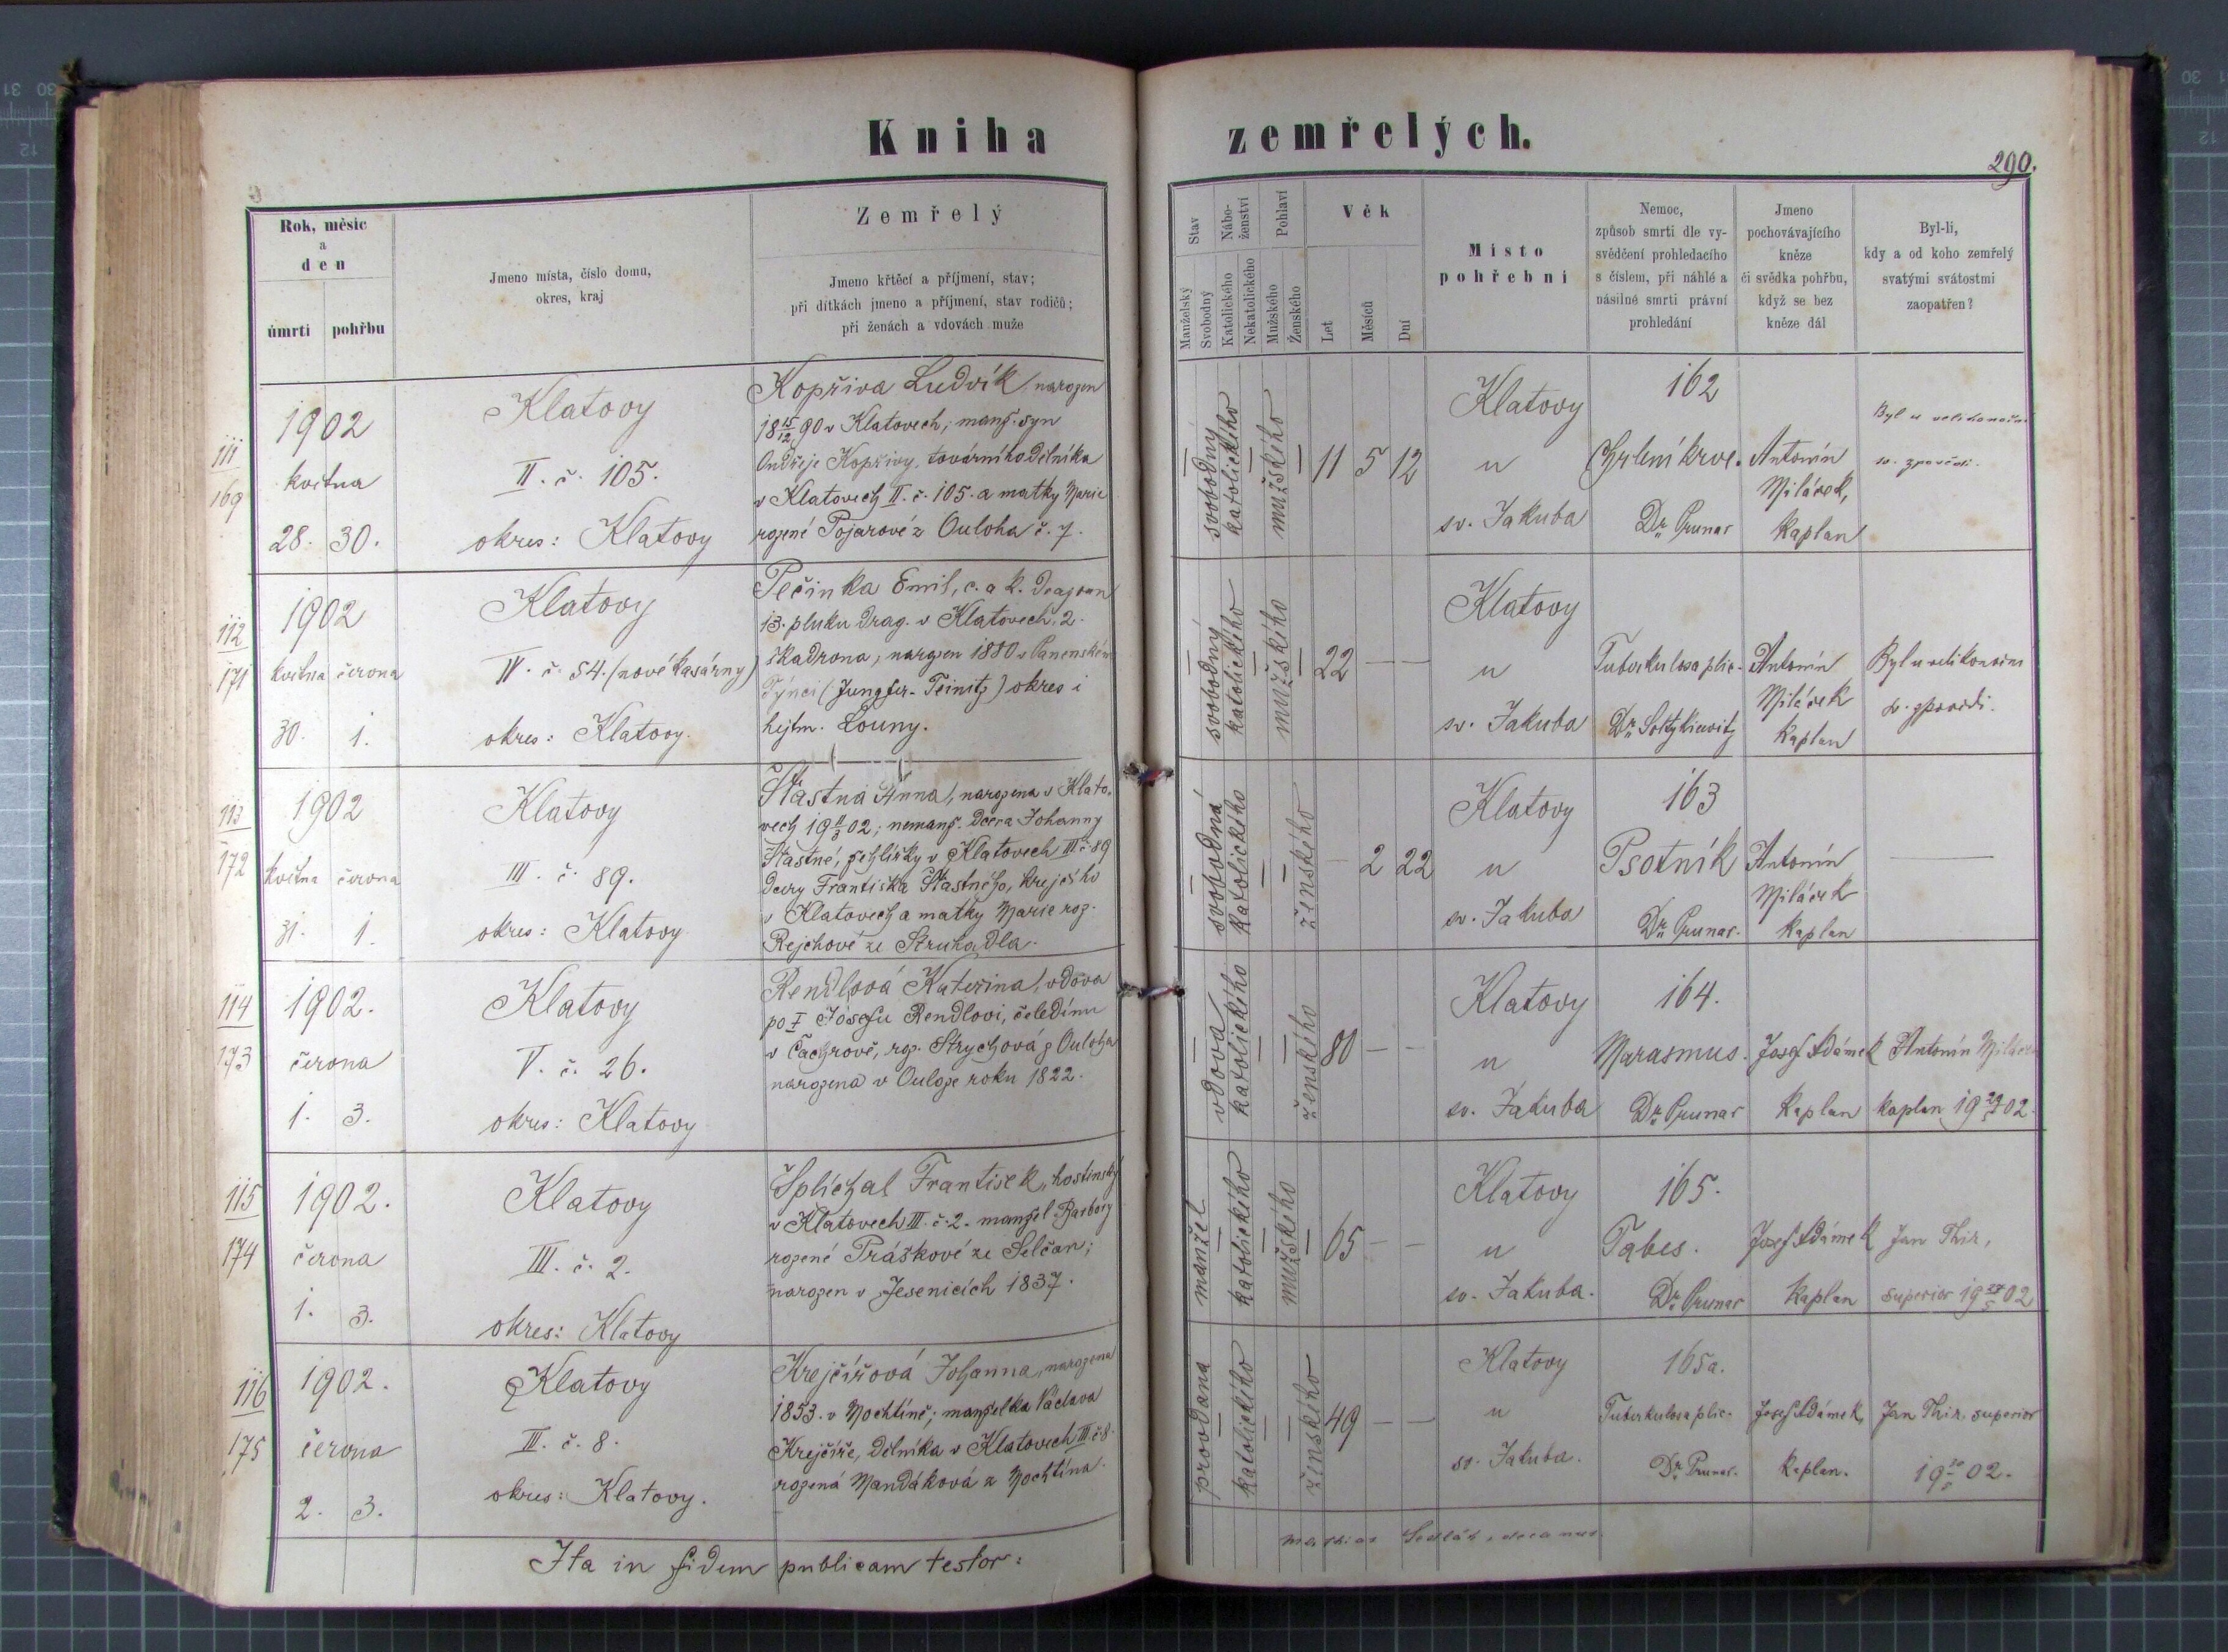 Kniha zemřelých.
290.
Rok, měsíc
a
den
úmrtí pohřbu
Jmeno místa, číslo domu,
okres, kraj
Zemřelý
Jmeno křtěcí a příjmení, stav;
při dítkách jmeno a příjmení, stav rodičů;
při ženách a vdovách muže
Stav
Manželský
Svobodný
Nábo-
ženství
Katolického
Nekatolického
Pohlaví
Mužského
Ženského
Věk
Let
Měsíců
Dní
Místo
pohřební
Nemoc,
způsob smrti dle vy-
svědčení prohledacího
s číslem, při náhlé a
násilné smrti právní
prohledání
Jmeno
pochovávajícího
kněze
či svědka pohřbu,
když se bez
kněze dál
Byl-li,
kdy a od koho zemřelý
svatými svátostmi
zaopatřen?
111
169
1902
května
28. 30.
Klatovy
II. č. 105.
okres: Klatovy
Kopřiva Ludvík, narozen
18 15/12 90 v Klatovech; manž. syn
Ondřeje Kopřivy, továrního dělníka
v Klatovech II. č. 105. a matky Marie
rozené Pojarové z Ouloha č. 7.
svobodný
katolického
mužského
11 5 12
Klatovy
u
sv. Jakuba
162
Chrlení krve.
Dr. Prunar
Antonín
Miláček,
kaplan
Byl u velikonoční
sv. zpovědi.
112
171
1902
května června
30. 1.
Klatovy
IV. č. 54. (nové kasárny)
okres: Klatovy.
Pečinka Emil, c. a k. dragoun
13. pluku drag. v Klatovech, 2.
škadrona, narozen 1880 v Panenském
Týnci (Jungfer-Teinitz) okres i
hejtm. Louny.
svobodný
katolického
mužského
22 — —
Klatovy
u
sv. Jakuba
Tuberkulosa plic.
Dr. Soltykiewitz
Antonín
Miláček
kaplan
Byl u velikonoční
sv. zpovědi.
113
172
1902
května června
31. 1.
Klatovy
III. č. 89.
okres: Klatovy
Šťastná Anna, narozena v Klato-
vech 19 11/3 02; nemanž. dcera Johanny
Šťastné, žehlířky v Klatovech III č 89
dcery Františka Šťastného, krejčího
v Klatovech a matky Marie roz.
Rejchové ze Struhadla.
svobodná
katolického
ženského
— 2 22
Klatovy
u
sv. Jakuba
163
Psotník
Dr. Prunar.
Antonín
Miláček
kaplan
—
114
173
1902.
června
1. 3.
Klatovy
V. č. 26.
okres: Klatovy
Rendlová Kateřina, vdova
po † Josefu Rendlovi, čeledínu
v Čachrově, roz. Strychová z Ouloha
narozena v Ouloze roku 1822.
vdova
katolického
ženského
80 — —
Klatovy
u
sv. Jakuba
164.
Marasmus.
Dr. Prunar
Josef Adámek
kaplan
Antonín Miláček
kaplan 19 29/5 02.
115
174
1902.
června
1. 3.
Klatovy
III. č. 2.
okres: Klatovy
Šplíchal František, hostinský
v Klatovech III. č. 2. manžel Barbory
rozené Práškové ze Selčan;
narozen v Jesenicích 1837.
manžel
katolického
mužského
65 — —
Klatovy
u
sv. Jakuba.
165.
Tabes.
Dr. Prunar
Josef Adámek
kaplan
Jan Thir,
superior 19 27/5 02
116
175
1902.
června
2. 3.
Klatovy
III. č. 8.
okres: Klatovy.
Krejčířová Johanna, narozena
1853. v Mochtíně; manželka Václava
Krejčíře, dělníka v Klatovech III. č 8.
rozená Mandáková z Mochtína.
provdaná
katolického
ženského
49 — —
Klatovy
u
sv. Jakuba.
165a.
Tuberkulosa plic.
Dr. Prunar.
Josef Adámek,
kaplan.
Jan Thir, superior
02.
Ita in fidem publicam testor:
Mathias Sedlák, decanus.